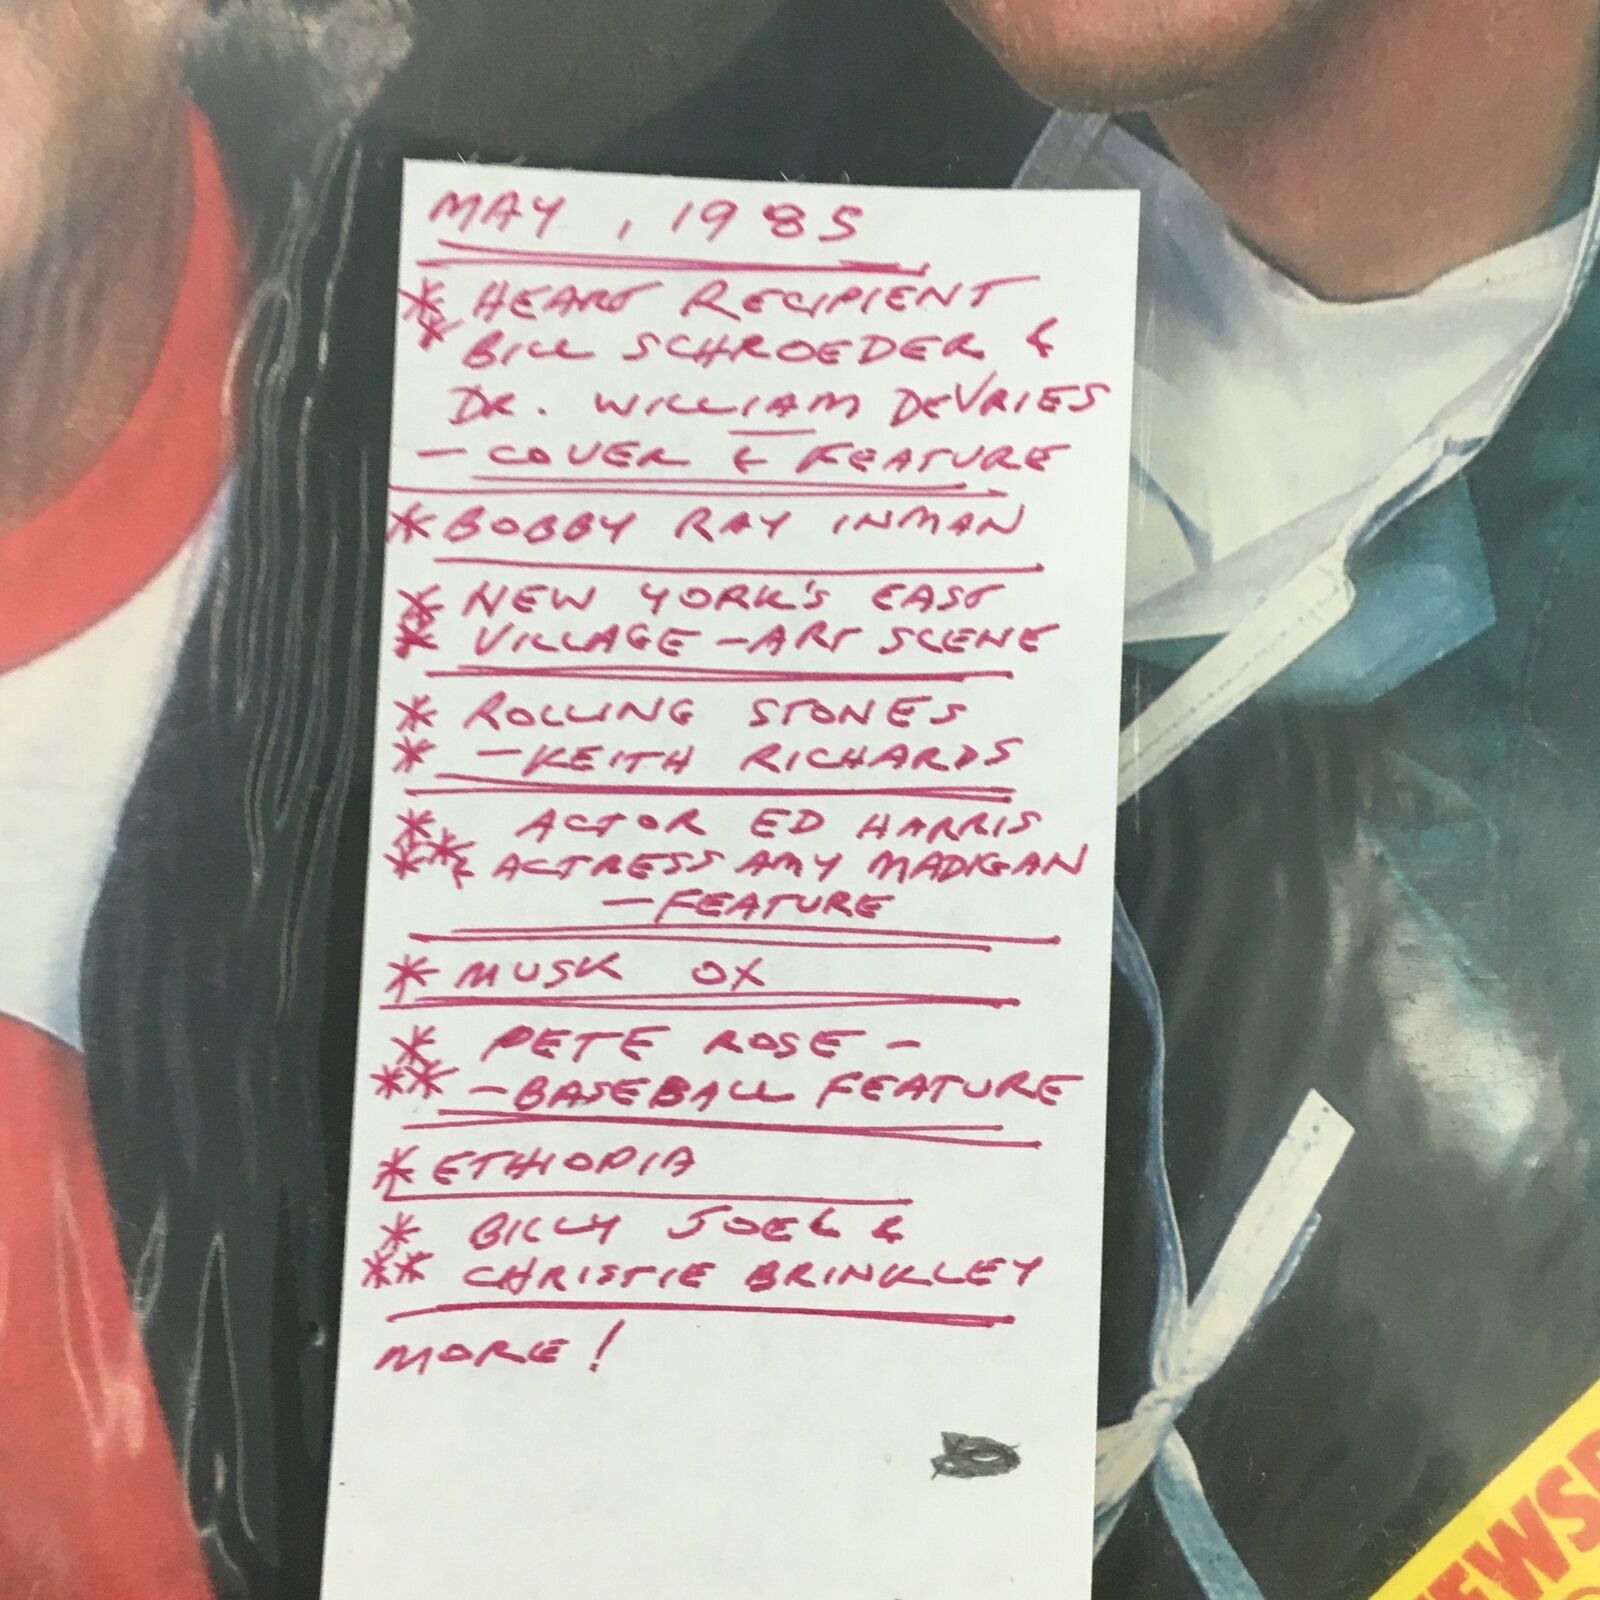 MAY, 1985
* HEART RECIPIENT
* BILL SCHROEDER &
DR. WILLIAM DEVRIES
- COVER & FEATURE
* BOBBY RAY INMAN
* NEW YORK'S EAST
* VILLAGE - ART SCENE
* ROLLING STONES
* - KEITH RICHARDS
* ACTOR ED HARRIS
** & ACTRESS AMY MADIGAN
- FEATURE
* MUSK OX
* PETE ROSE -
** - BASEBALL FEATURE
* ETHIOPIA
* BILLY JOEL &
** CHRISTIE BRINKLEY
MORE!